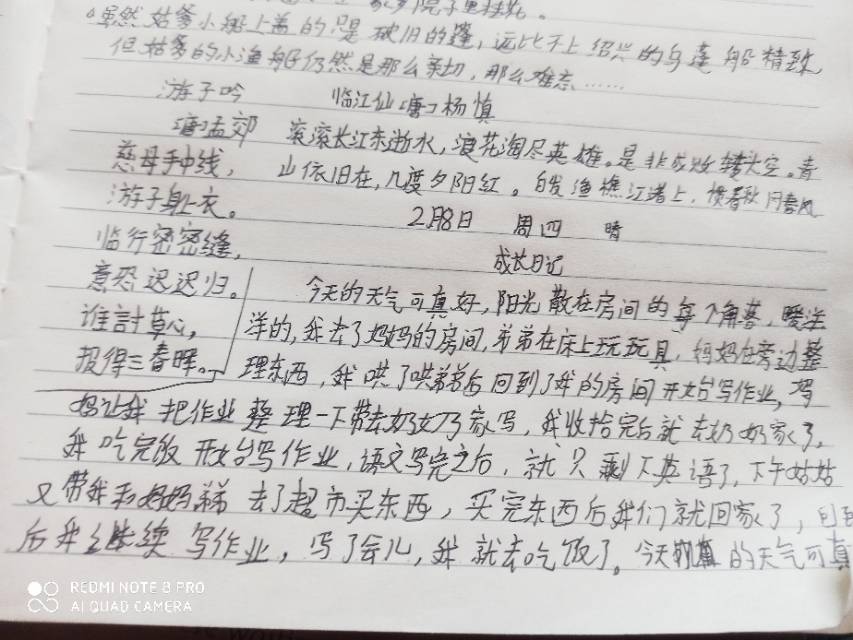 家乡院子里桂花。
虽然姑爹小船上盖的只是破旧的篷，远比不上绍兴的乌蓬船精致
但姑爹的小渔船仍然是那么亲切，那么难忘……
游子吟
唐:孟郊
慈母手中线，
游子身上衣。
临行密密缝，
意恐迟迟归。
谁討草心，
报得三春晖。
临江仙 唐:杨慎
滚滚长江东逝水，浪花淘尽英雄。是非成败转头空。青
山依旧在，几度夕阳红。白发渔樵江渚上，惯看秋月春风
2月8日 周四 晴
成长日记
今天的天气可真好，阳光散在房间的每个角落，暖洋
洋的，我去了妈妈的房间，弟弟在床上玩玩具，妈妈在旁边整
理东西，我哄了哄弟弟后回到了我的房间开始写作业，妈
妈让我把作业整理一下带去奶奶家写，我收拾完后就去奶奶家了，
我吃完饭开始写作业，语文写完之后，就只剩下英语了，下午姑姑
又带我和妈妈 去了超市买东西，买完东西后我们就回家了，回
后我继续写作业，写了会儿，我就去吃饭了。今天 的天气可真
REDMI NOTE 8 PRO
AI QUAD CAMERA